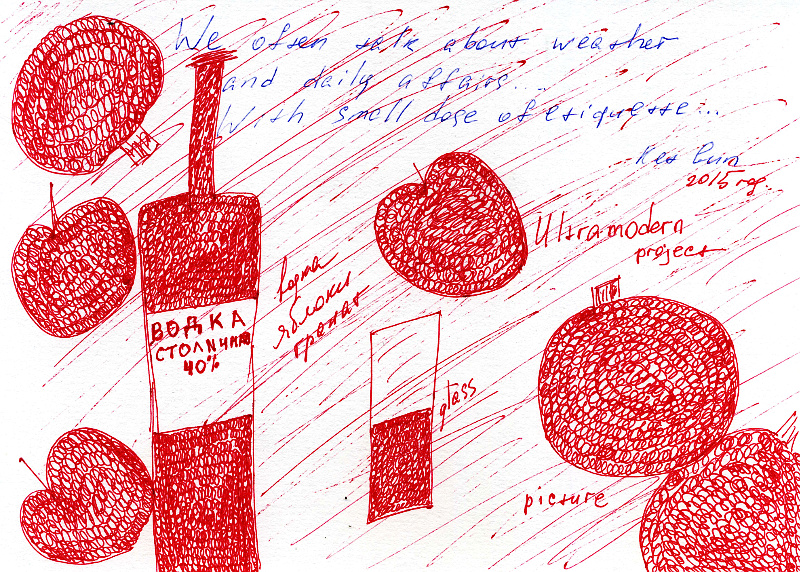 We often talk about weather
and daily affairs...
With small dose of etiquette...
2015 год.
Ultramodern
project
водка
яблоки
гранат
ВОДКА
СТОЛИЧНАЯ
40%
glass
picture